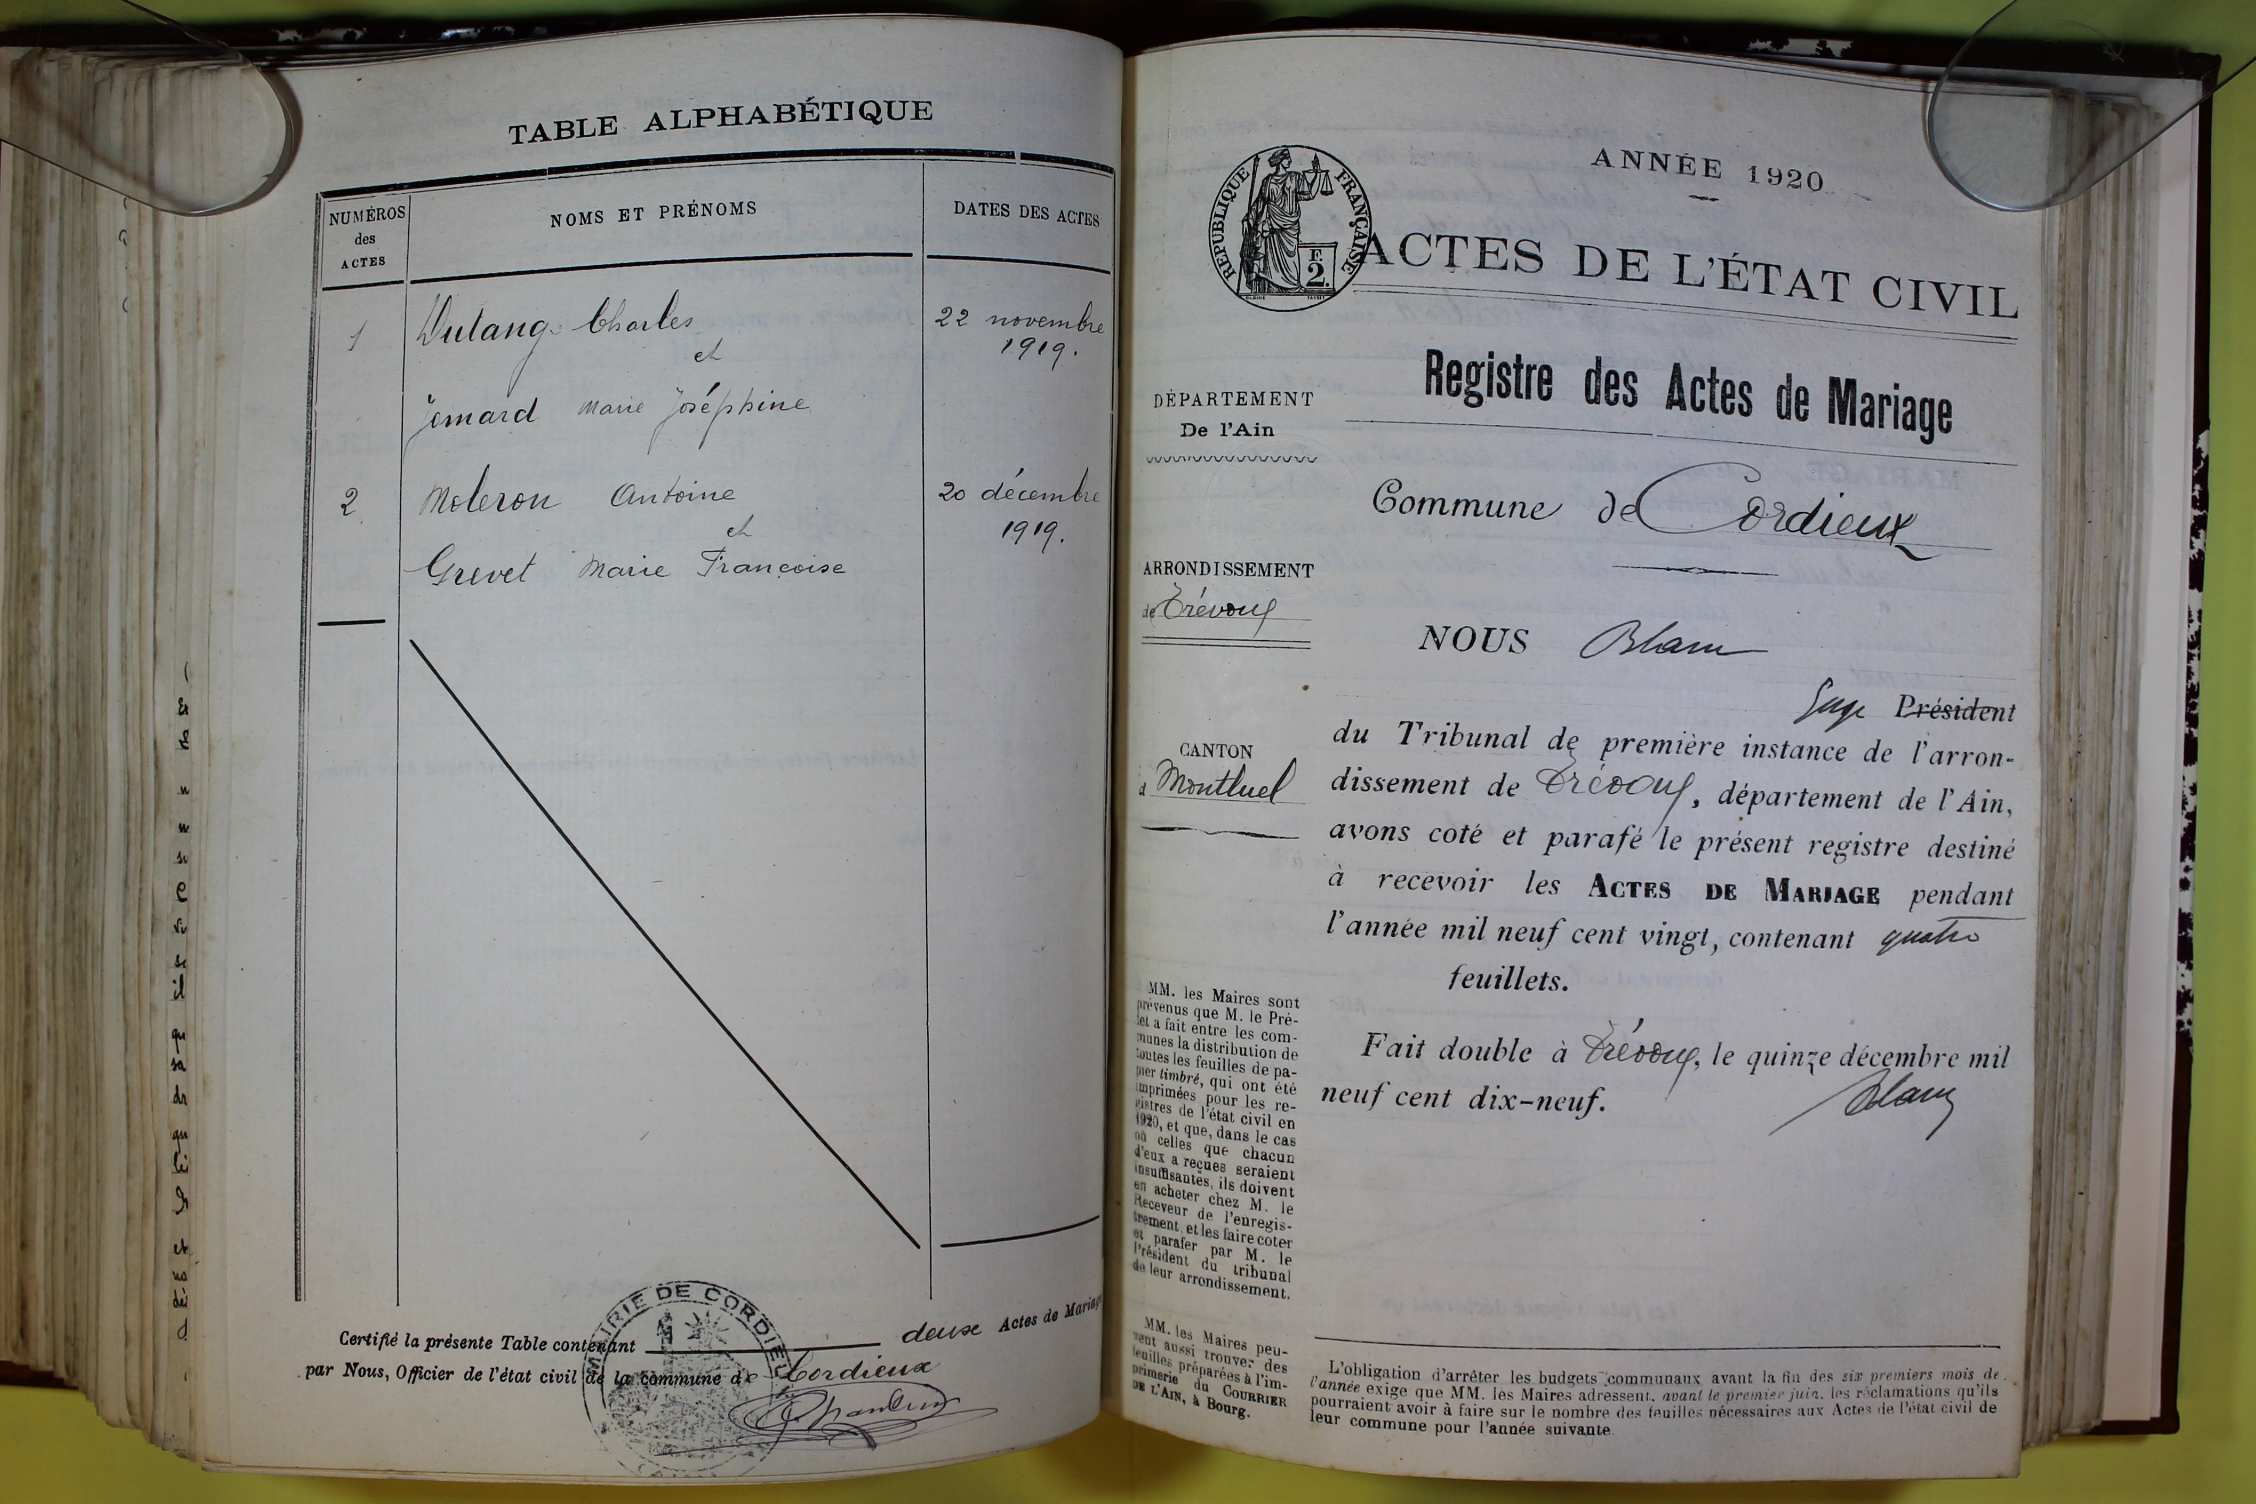 TABLE ALPHABÉTIQUE
NUMÉROS
des
ACTES
NOMS ET PRÉNOMS
DATES DES ACTES
1
Dutang Charles
22 novembre
et
1919.
Jomard Marie Joséphine
2
Moleron Antoine
20 décembre
et
1919.
Grevet Marie Françoise
Certifié la présente Table contenant deux Actes de Mariage
par Nous, Officier de l'état civil de la commune de Cordieux
MAIRIE DE CORDIEUX
ANNÉE 1920
RÉPUBLIQUE FRANÇAISE
2.
ACTES DE L'ÉTAT CIVIL
Registre des Actes de Mariage
DÉPARTEMENT
De l'Ain
Commune de Cordieux
ARRONDISSEMENT
de Trévoux
NOUS Blanc
Juge Président
du Tribunal de première instance de l'arron-
dissement de Trévoux, département de l'Ain,
avons coté et parafé le présent registre destiné
à recevoir les ACTES DE MARIAGE pendant
l'année mil neuf cent vingt, contenant quatre
feuillets.
CANTON
d Montluel
Fait double à Trévoux, le quinze décembre mil
neuf cent dix-neuf.
Blanc
MM. les Maires sont
prévenus que M. le Pré-
fet a fait entre les com-
munes la distribution de
toutes les feuilles de pa-
pier timbré, qui ont été
imprimées pour les re-
gistres de l'état civil en
1920, et que, dans le cas
où celles que chacun
d'eux a reçues seraient
insuffisantes, ils doivent
en acheter chez M. le
Receveur de l'enregis-
trement et les faire coter
et parafer par M. le
Président du tribunal
de leur arrondissement.
MM. les Maires peu-
vent aussi trouver des
feuilles préparées à l'im-
primerie du COURRIER
DE L'AIN, à Bourg.
L'obligation d'arrêter les budgets communaux avant la fin des six premiers mois de
l'année exige que MM. les Maires adressent, avant le premier juin, les réclamations qu'ils
pourraient avoir à faire sur le nombre des feuilles nécessaires aux Actes de l'état civil de
leur commune pour l'année suivante.